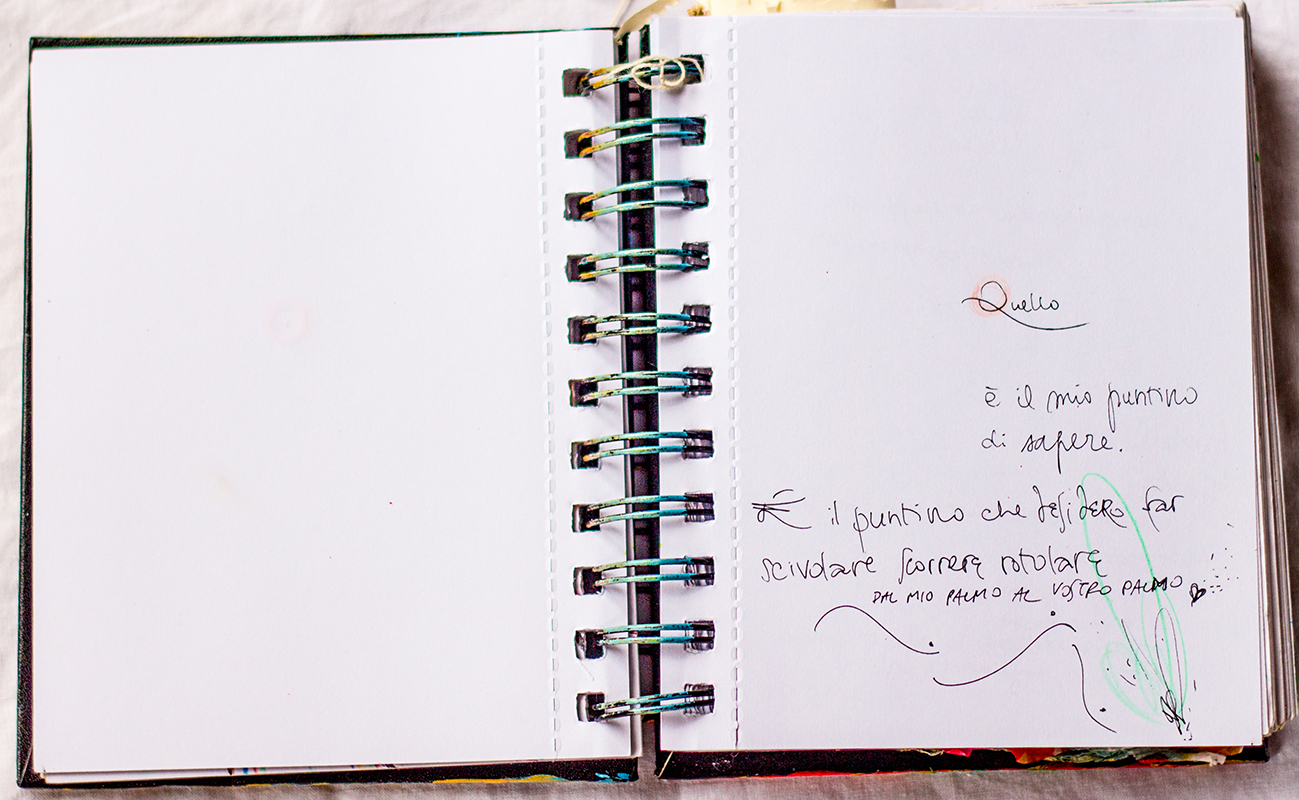 Quello
è il mio puntino
di sapere.
È il puntino che desidero far
scivolare scorrere rotolare
DAL MIO PALMO AL VOSTRO PALMO